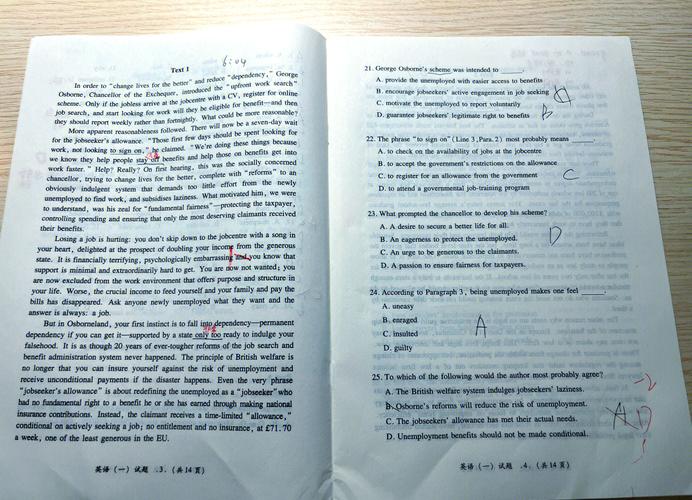 Text 1
In order to "change lives for the better" and reduce "dependency," George
Osborne, Chancellor of the Exchequer, introduced the "upfront work search"
scheme. Only if the jobless arrive at the jobcentre with a CV, register for online
job search, and start looking for work will they be eligible for benefit—and then
they should report weekly rather than fortnightly. What could be more reasonable?
More apparent reasonableness followed. There will now be a seven-day wait
for the jobseeker's allowance. "Those first few days should be spent looking for
work, not looking to sign on," he claimed. "We're doing these things because
we know they help people stay off benefits and help those on benefits get into
work faster." Help? Really? On first hearing, this was the socially concerned
chancellor, trying to change lives for the better, complete with "reforms" to an
obviously indulgent system that demands too little effort from the newly
unemployed to find work, and subsidises laziness. What motivated him, we were
to understand, was his zeal for "fundamental fairness"—protecting the taxpayer,
controlling spending and ensuring that only the most deserving claimants received
their benefits.
Losing a job is hurting: you don't skip down to the jobcentre with a song in
your heart, delighted at the prospect of doubling your income from the generous
state. It is financially terrifying, psychologically embarrassing and you know that
support is minimal and extraordinarily hard to get. You are now not wanted; you
are now excluded from the work environment that offers purpose and structure in
your life. Worse, the crucial income to feed yourself and your family and pay the
bills has disappeared. Ask anyone newly unemployed what they want and the
answer is always: a job.
But in Osborneland, your first instinct is to fall into dependency—permanent
dependency if you can get it—supported by a state only too ready to indulge your
falsehood. It is as though 20 years of ever-tougher reforms of the job search and
benefit administration system never happened. The principle of British welfare is
no longer that you can insure yourself against the risk of unemployment and
receive unconditional payments if the disaster happens. Even the very phrase
"jobseeker's allowance" is about redefining the unemployed as a "jobseeker" who
had no fundamental right to a benefit he or she has earned through making national
insurance contributions. Instead, the claimant receives a time-limited "allowance,"
conditional on actively seeking a job; no entitlement and no insurance, at £71.70
a week, one of the least generous in the EU.
英语（一）试题 .3.（共14页）
21. George Osborne's scheme was intended to ____.
A. provide the unemployed with easier access to benefits
B. encourage jobseekers' active engagement in job seeking
C. motivate the unemployed to report voluntarily
D. guarantee jobseekers' legitimate right to benefits
B
22. The phrase "to sign on" (Line 3, Para. 2) most probably means ____
A. to check on the availability of jobs at the jobcentre
B. to accept the government's restrictions on the allowance
C. to register for an allowance from the government
C
D. to attend a governmental job-training program
23. What prompted the chancellor to develop his scheme?
A. A desire to secure a better life for all.
B. An eagerness to protect the unemployed.
D
C. An urge to be generous to the claimants.
D. A passion to ensure fairness for taxpayers.
24. According to Paragraph 3, being unemployed makes one feel ____.
A. uneasy
B. enraged
A
C. insulted
D. guilty
25. To which of the following would the author most probably agree?
A. The British welfare system indulges jobseekers' laziness.
B. Osborne's reforms will reduce the risk of unemployment.
A D
C. The jobseekers' allowance has met their actual needs.
D. Unemployment benefits should not be made conditional.
英语（一）试题 .4.（共14页）